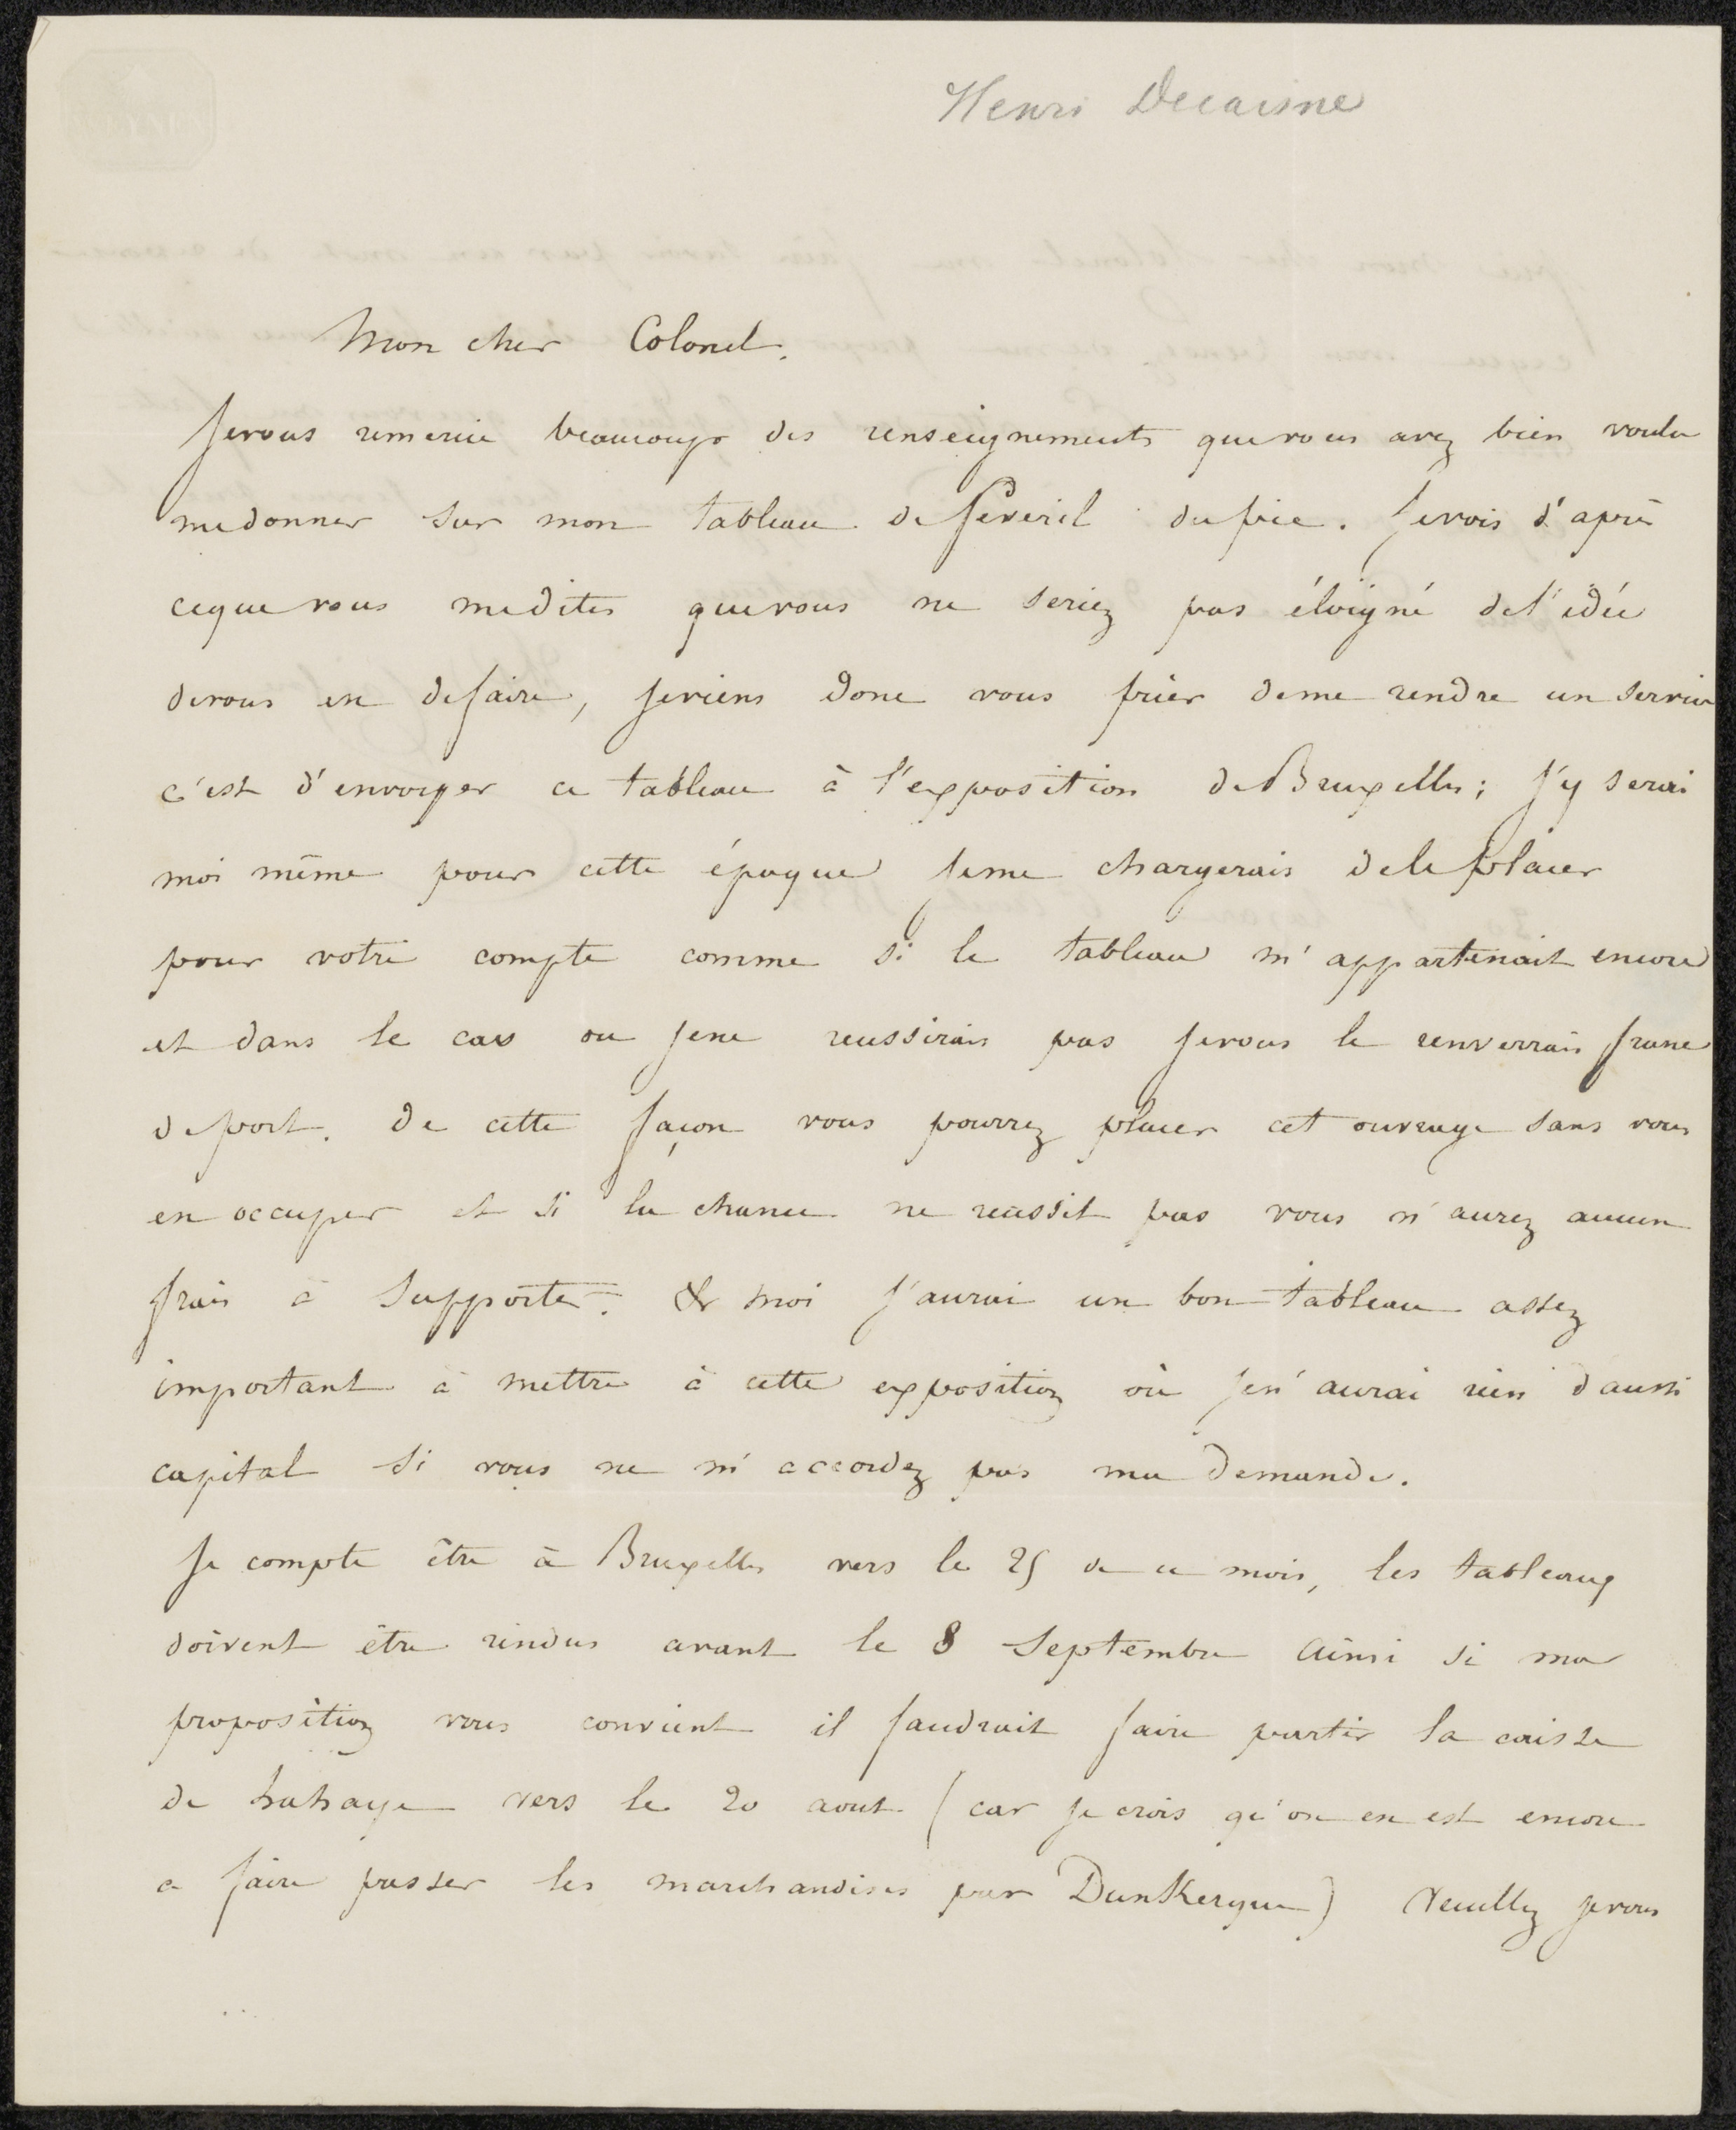 Henri Decaisne
Mon cher Colonel.
Je vous remercie beaucoup des renseignements que vous avez bien voulu
me donner sur mon tableau de Peveril du pic. Je vois d'après
ce que vous me dites que vous ne seriez pas éloigné de l'idée
de vous en defaire, je viens donc vous prier de me rendre un service
c'est d'envoyer ce tableau à l'exposition de Bruxelles; j'y serai
moi même pour cette époque je me chargerais de le placer
pour votre compte comme si le tableau m'appartenait encore
et dans le cas ou je ne reussirais pas je vous le renverrais franc
de port. de cette façon vous pourrez placer cet ouvrage sans vous
en occuper et si la chance ne reussit pas vous n'aurez aucun
frais à supporter. Et moi j'aurai un bon tableau assez
important à mettre à cette exposition où je n'aurai rien d'aussi
capital si vous ne m'accordez pas ma demande.
Je compte être à Bruxelles vers le 25 de ce mois, les tableaux
doivent être rendus avant le 8 Septembre Ainsi si ma
proposition vous convient il faudrait faire partir la caisse
de Lahaye vers le 20 aout (car je crois qu'on en est encore
a faire passer les marchandises par Dunkerque) Veuillez je vous